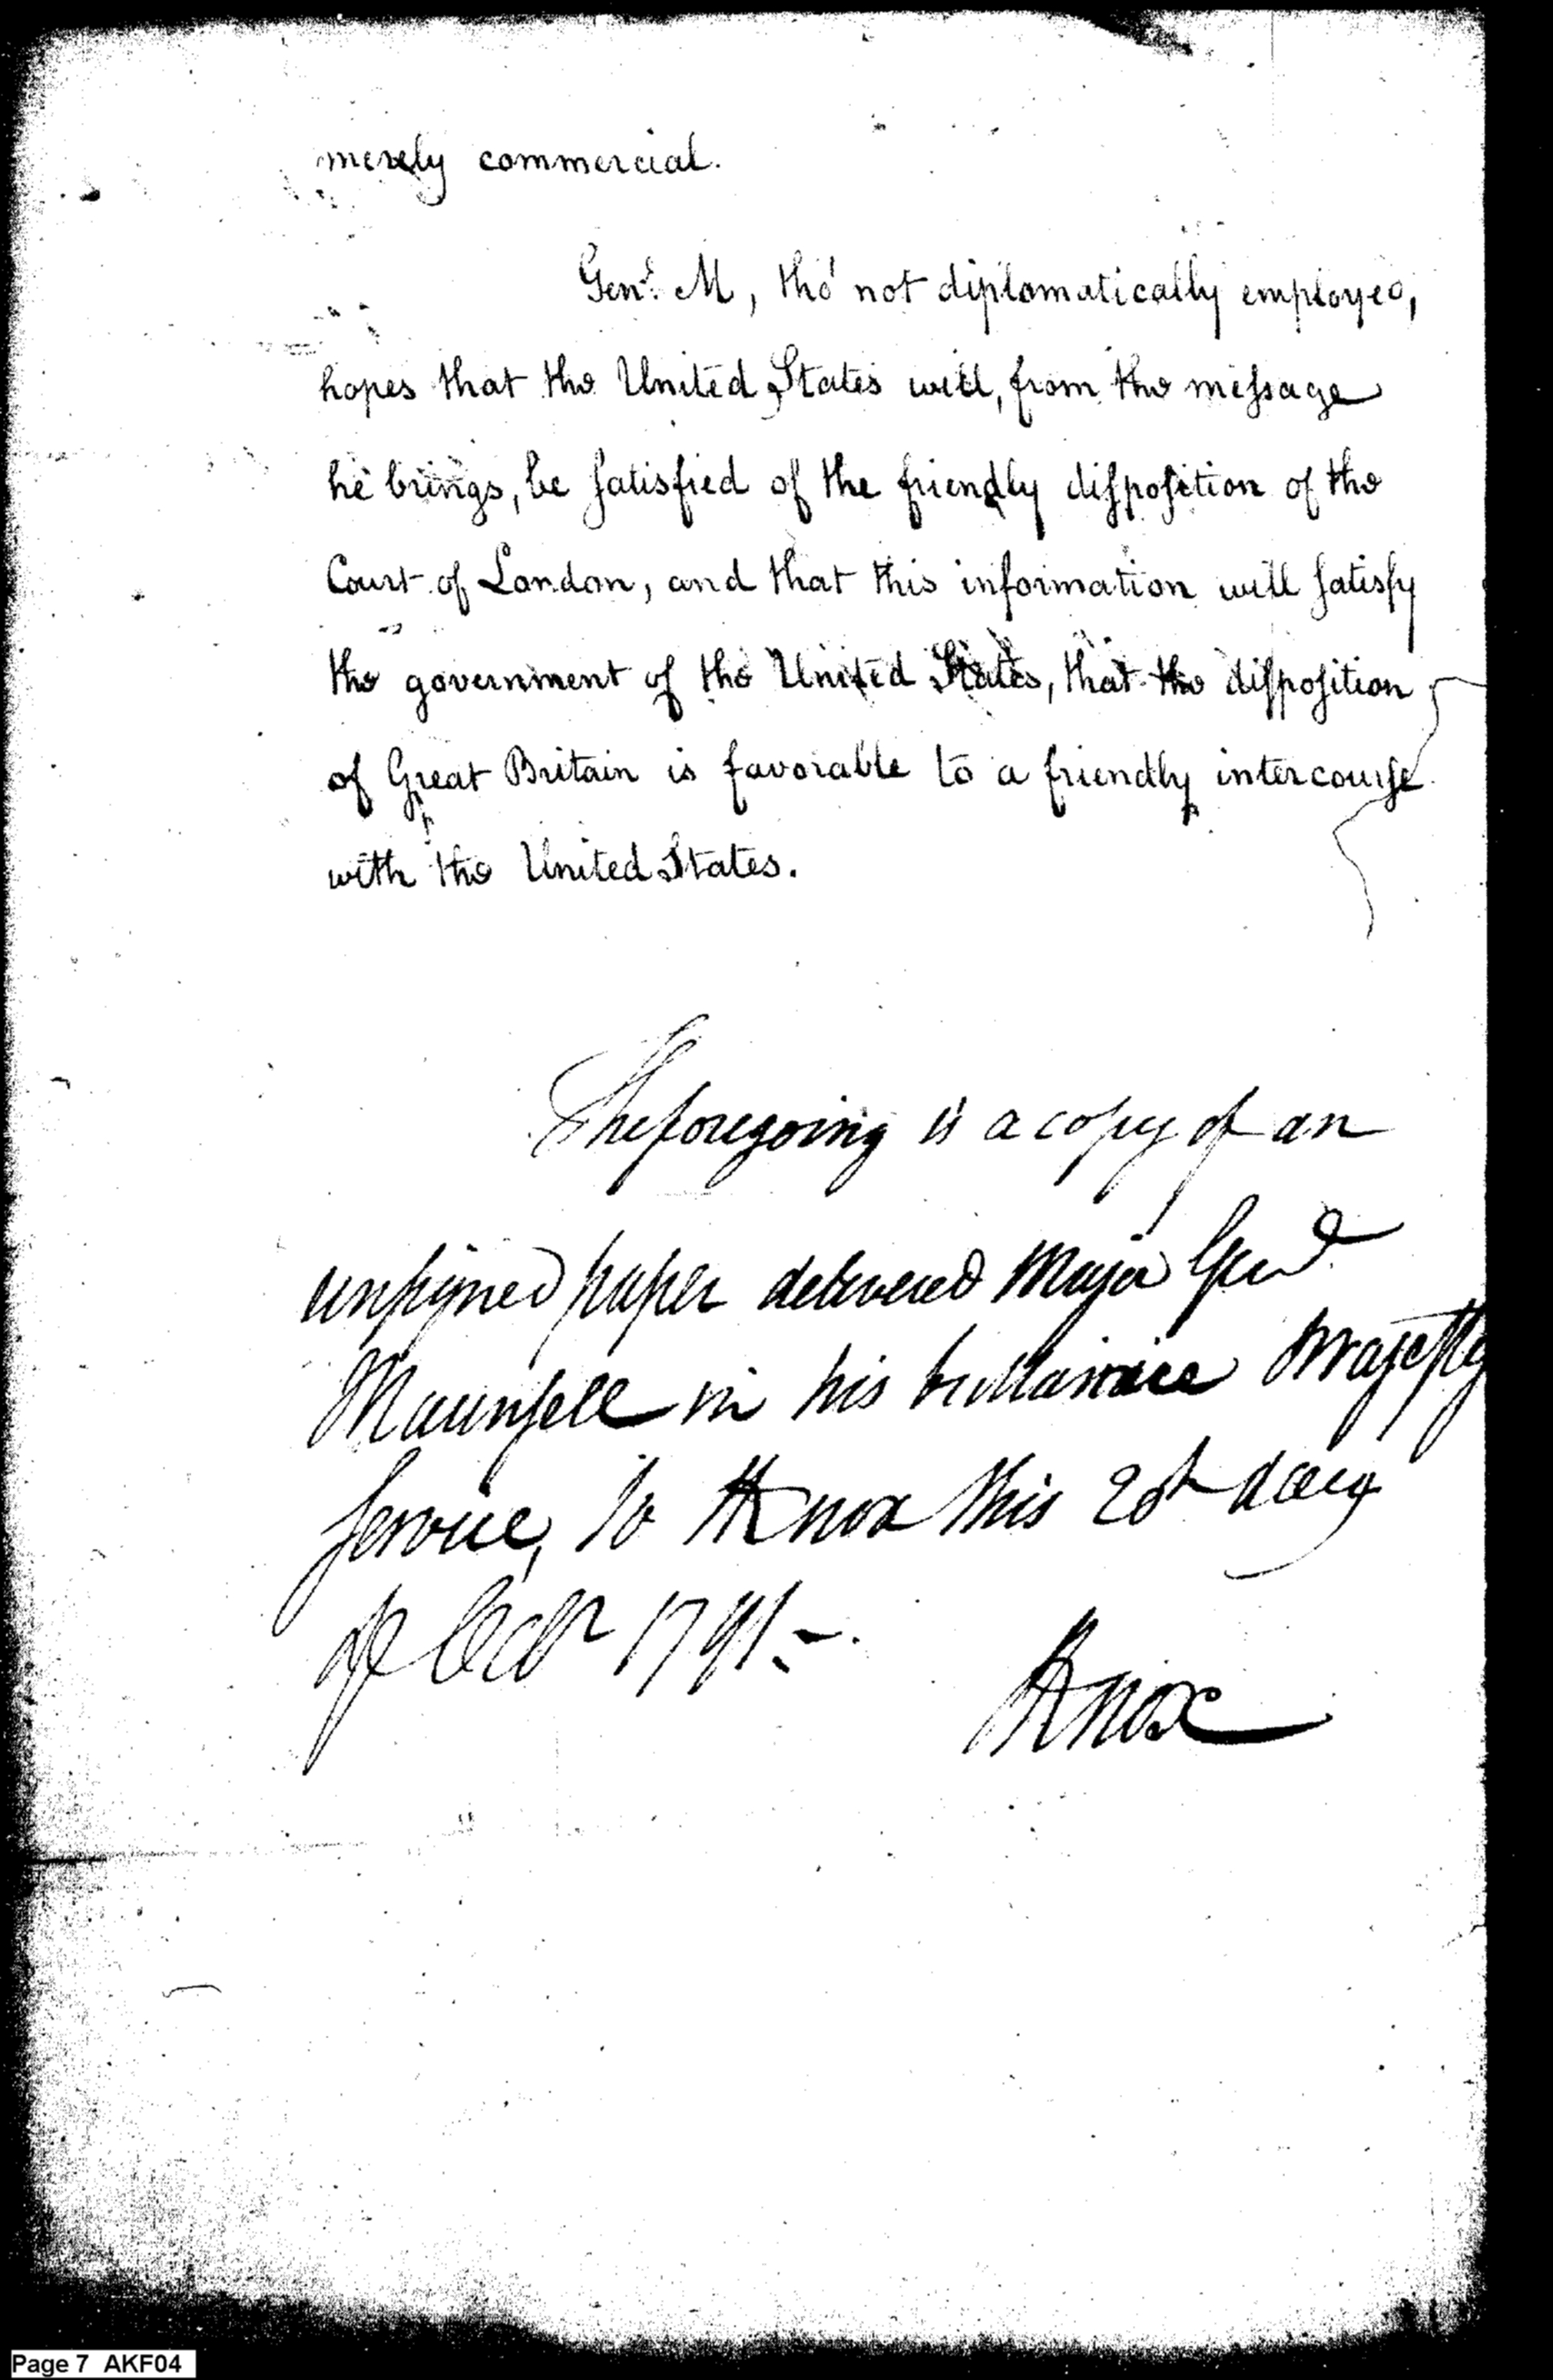 merely commercial.
Genl. M, tho' not diplomatically employed,
hopes that the United States will, from the message
he brings, be satisfied of the friendly disposition of the
Court of London, and that this information will satisfy
the government of the United States, that the disposition
of Great Britain is favorable to a friendly intercourse
with the United States.
The foregoing is a copy of an
unsigned paper delivered Major Genl
Maunsell in his brittannice Majesty
service, to HKnox this 20th day
of Octr 1791
HKnox
Page 7 AKF04